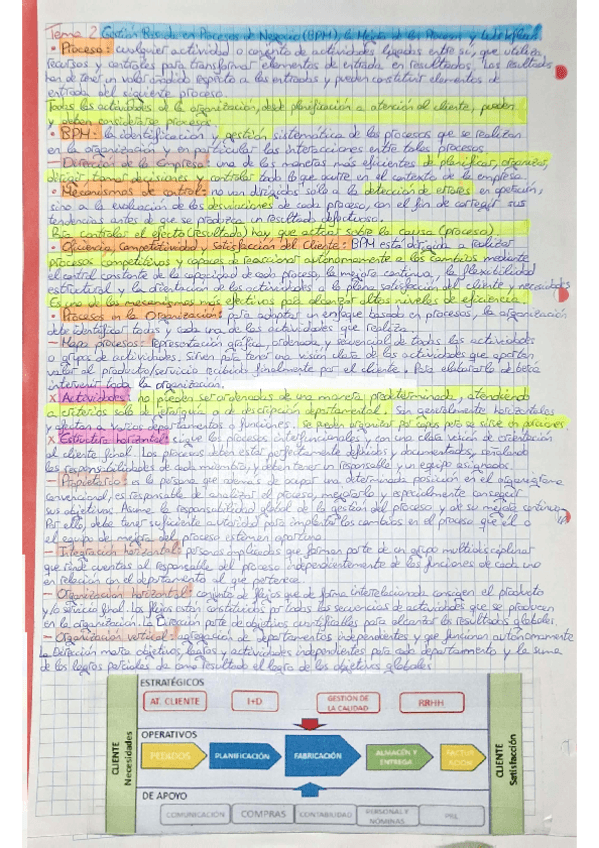 Tema 2. Gestión Basada en Procesos de Negocio (BPM), la Mejora de los Procesos y Workflows
• Proceso: cualquier actividad o conjunto de actividades ligadas entre sí, que utiliza
recursos y controles para transformar elementos de entrada en resultados. Los resultados
han de tener un valor añadido respecto a las entradas y pueden constituir elementos de
entrada del siguiente proceso.
Todas las actividades de la organización, desde planificación a atención al cliente, pueden
y deben considerarse procesos
• BPM: la identificación y gestión sistemática de los procesos que se realizan
en la organización y en particular las interacciones entre tales procesos
- Dirección de la Empresa: una de las maneras más eficientes de planificar, organizar,
dirigir, tomar decisiones y controlar todo lo que ocurre en el contexto de la empresa.
• Mecanismos de control: no van dirigidos sólo a la detección de errores en operación,
sino a la evaluación de las desviaciones de cada proceso, con el fin de corregir sus
tendencias antes de que se produzca un resultado defectuoso.
Para controlar el efecto (resultado) hay que actuar sobre la causa (proceso)
• Eficiencia, Competitividad y Satisfacción del Cliente: BPM está dirigida a realizar
procesos competitivos y capaces de reaccionar autónomamente a los cambios mediante
el control constante de la capacidad de cada proceso, la mejora continua, la flexibilidad
estructural y la orientación de las actividades a la plena satisfacción del cliente y necesidades
Es uno de los mecanismos más efectivos para alcanzar altos niveles de eficiencia.
• Procesos en la Organización: para adoptar un enfoque basado en procesos, la organización
debe identificar todas y cada una de las actividades que realiza.
- Mapa procesos: representación gráfica, ordenada y secuencial de todas las actividades
o grupos de actividades. Sirven para tener una visión clara de las actividades que aportan
valor al producto/servicio recibido finalmente por el cliente. Para elaborarlo deberá
intervenir toda la organización.
x Actividades: no pueden ser ordenadas de una manera predeterminada, atendiendo
a criterios sólo de jerarquía o de descripción departamental. Son generalmente horizontales
y afectan a varios departamentos o funciones. Se pueden organizar por
x Estructura horizontal: sigue los procesos interfuncionales y con una clara visión de orientación
al cliente final. Los procesos deben estar perfectamente definidos y documentados, señalando
las responsabilidades de cada miembro, y deben tener un responsable y un equipo asignados.
- Propietario: es la persona que además de ocupar una determinada posición en el organigrama
convencional, es responsable de analizar el proceso, mejorarlo y especialmente conseguir
sus objetivos. Asume la responsabilidad global de la gestión del proceso y de su mejora continua.
Por ello, debe tener suficiente autoridad para implantar los cambios en el proceso que él o
el equipo de mejora del proceso estimen oportuno.
- Integración horizontal: personas implicadas que forman parte de un grupo multidisciplinar
que rinde cuentas al responsable del proceso independientemente de las funciones de cada uno
en relación con el departamento al que pertenece.
- Organización horizontal: conjunto de flujos que de forma interrelacionada consiguen el producto
y/o servicio final. Los flujos están constituidos por todas las secuencias de actividades que se producen
en la organización. La Dirección parte de objetivos cuantificables para alcanzar los resultados globales.
- Organización vertical: agregación de departamentos independientes y que funcionan autónomamente
La Dirección marca objetivos, logros y actividades independientes para cada departamento y la suma
de los logros parciales da como resultado el logro de los objetivos globales
ESTRATÉGICOS
AT. CLIENTE
I+D
GESTIÓN DE
LA CALIDAD
RRHH
CLIENTE
Necesidades
OPERATIVOS
PEDIDOS
PLANIFICACIÓN
FABRICACIÓN
ALMACÉN Y
ENTREGA
FACTUR
ACIÓN
CLIENTE
Satisfacción
DE APOYO
COMUNICACIÓN
COMPRAS
CONTABILIDAD
PERSONAL Y
NÓMINAS
PRL